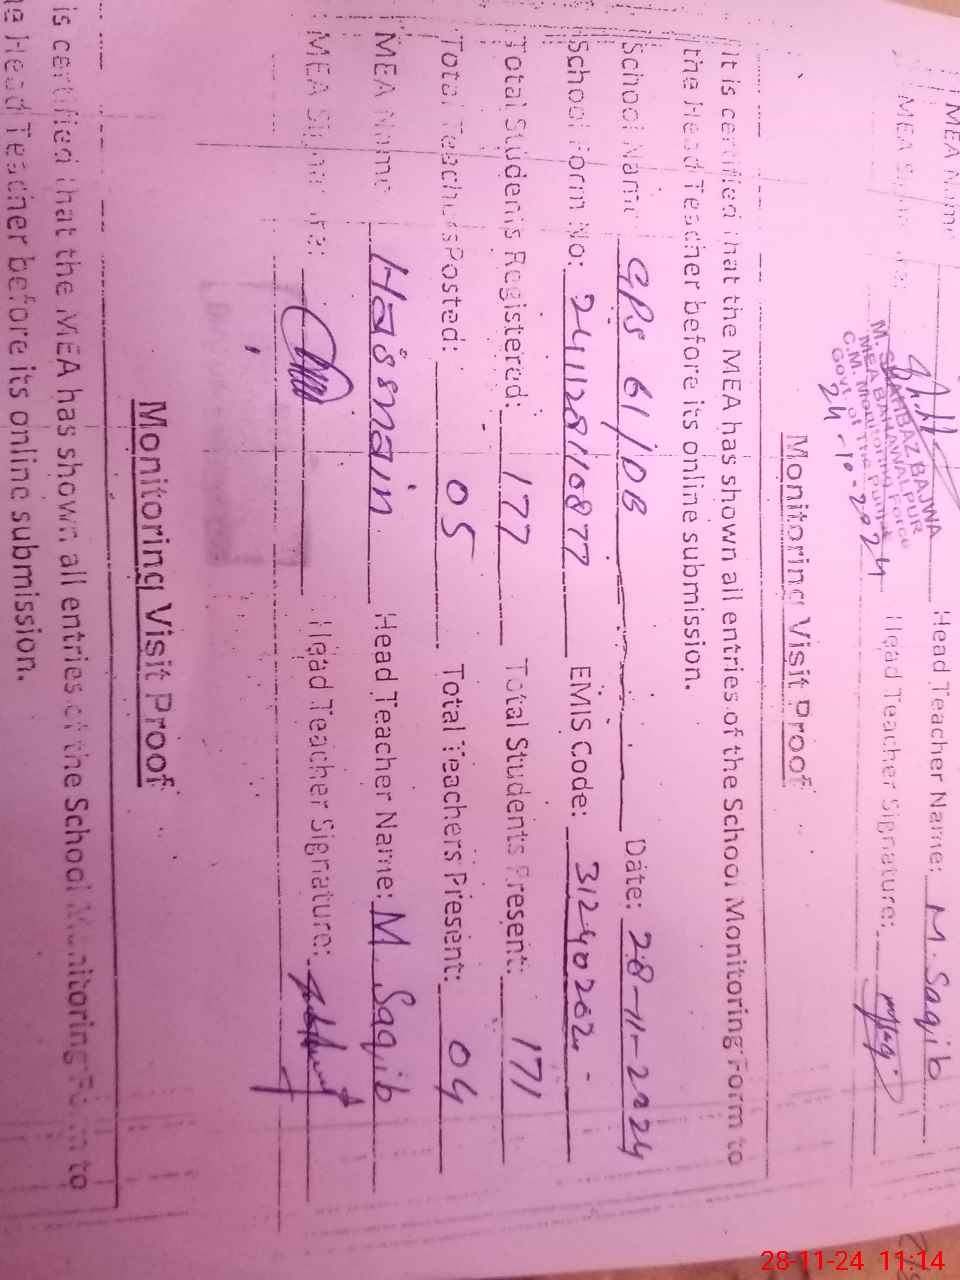 MEA Name Head Teacher Name: M. Saqib
MEA Head Teacher Signature:
M. SHAHBAZ BAJWA
MEA BAHAWALPUR
C.M. Monitoring Force
Govt. of The Punjab
24-10-2024
Monitoring Visit Proof
It is certified that the MEA has shown all entries of the School Monitoring Form to
the Head Teacher before its online submission.
School Name GPS 61/DB Date: 28-11-2024
School Form No: EMIS Code: 31240202
Total Students Registered: 177 Total Students Present: 171
Total Teachers Posted: 05 Total Teachers Present: 04
MEA Name Hassnain Head Teacher Name: M Saqib
MEA Signature: Head Teacher Signature:
Monitoring Visit Proof
is certified that the MEA has shown all entries of the School Monitoring Form to
e Head Teacher before its online submission.
28-11-24 11:14